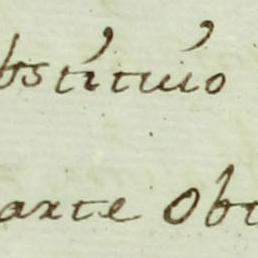 bstituio
arte Ob